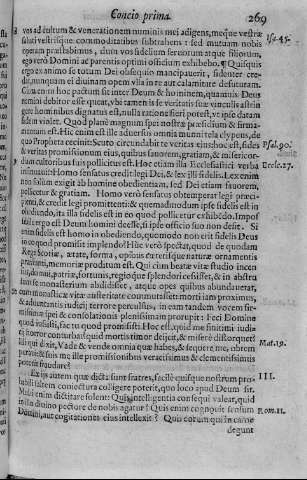 Concio prima. 269
vos ad cultum & venerationem numinis mei adigens, neque vestræ
salutis vestrisque commoditatibus subtraham : sed mutuam nobis
operam præstabimus, divis vos fidelium servorum atque filiorum,
ego verò Domini ac parentis optimi officium exhibebo. ¶ Quisquis
ergo ex animo se totum Dei obsequio mancipaverit, sidenter cre-
dat, nunquam ei divinam opem ulla in re aut calamitate defuturam.
Cùm hoc pactum sit inter Deum & hominem, quamvis Deus
nemini debitor esse queat, ubi tamen is se veritatis suæ vinculis astrin-
gere hominibus dignatus est, nulla ratione fieri potest, ut ipse datam
fidem violet. Quòd planè magnum spei nostræ præsidium & firma-
mentum est. Hic enim est ille adversus omnia munitela clypeus, de
quo Propheta cecinit: Scuto circundabit te veritas eius: hoc est, fides
& veritas promissionum eius, quibus favorem, gratiam, & misericor-
diam cultoribus suis pollicitus est. Hoc etiam illa Ecclesiastici verba
insinuant: Homo sensatus credit legi Dei, & lex illi fidelis. Lex enim
non solùm exigit ab homine obedientiam, sed Dei etiam favorem,
pollicetur & gratiam. Homo verò sensatus obtemperat legi præci-
penti, & credit legi promittenti: & quemadmodum ipse fidelis est in
obediendo, ita illa fidelis est in eo quod pollicetur exhibendo. Impos-
sibile ergo est Deum homini deesse, si ipse officio suo non desit. Si
enim ille fidelis est in obediendo, quomodo non erit fidelis Deus
in eo quod promisit implendo? Hîc verò spectat, quod de quodam
Rege
præstanti, memoriæ proditum est. Qui cum beatæ vitæ studio incen-
sus, domui, patriæ, fortunis, regióque splendori cessisset, & in abstru-
sum se monasterium abdidisset, atque opes quibus abundaverat,
cum inopia & vitæ austeritate commutasset: morti iam proximus,
& adventantis iudicij terrore perculsus, in eam tandem vocem sir-
missimæ spei & consolationis plenissimam prorupit: Feci Domine
quod iussisti, fac tu quod promisisti. Hoc est, quid me finitimi iudi-
cij terror conturbat? quid mortis timor deijcit, & miserè discrucier?
Vade & vende omnia quæ habes, & sequere me, obtem-
peravi: & suis me ille promissionibus veracissimus & clementissimus
potest fraudare?
Ex ijs autem quæ dicta sunt fratres, facilè quisque nostrûm pro-
babili saltem coniectura colligere poterit, quo loco apud Deum sit.
Mihi enim dictitare solent: Quis intelligentia consequi valeat, quid
in illa divino pectore de nobis agatur? Quis enim cognovit sensum
Domini, aut cogitationes eius intellexit? Quis eorum qui in carne
degunt
Isa. 45.
Psal. 90.
Eccle. 27.
Mat. 19.
III.
Rom. 11.